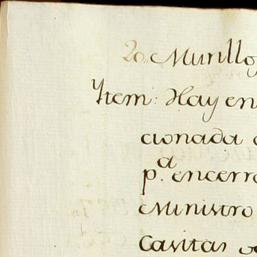 20. Murillo
Ytem: Hay en
cionada
pa. encerr
Ministro
Casitas